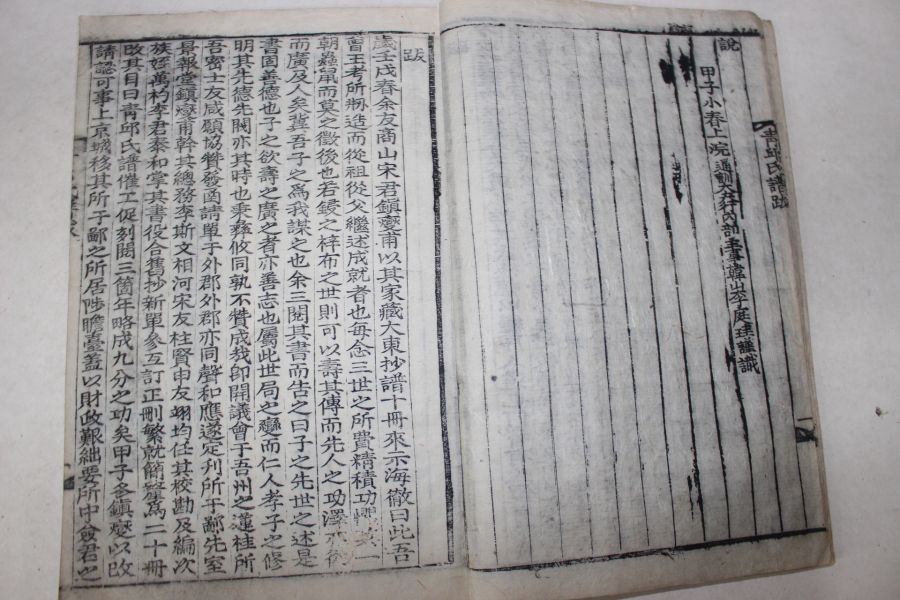 說
甲子小春上浣通訓大夫行內部主事韓山李庭珪謹識
靑邱氏譜跋
跋
歲壬戌春余友商山宋君鎭燮甫以其家藏大東抄譜十冊來示海徹曰此吾
曾王考所刱造而從祖從父繼述成就者也每念三世之所費精積功
朝蟲鼠而莫之徵後也若鋟之梓布之世則可以壽其傳而先人之功澤
而廣及人矣冀吾子之爲我謀之也余三閱其書而告之曰子之先世之述是
書固善德也子之欲壽之廣之者亦善志也屬此世局之變而仁人孝子之修
明其先德先閥亦其時也秉彝攸同孰不贊成哉卽開議會于吾州之蓮桂所
吾密士友咸願協贊發函請單于外郡外郡亦同聲和應遂定刊所于鄙先室
景報堂鎭燮甫幹其總務李斯文相河宋友柱賢申友翊均任其校勘及編次
族姪萬杓李君泰和掌其書役合舊抄新單參互訂正刪繁就簡釐爲二十冊
改其目曰靑邱氏譜催工促刻閱三箇年略成九分之功矣甲子冬鎭燮以改
請認可事上京城移其所于鄙之所居陟瞻臺蓋以財政艱絀要所中僉君之